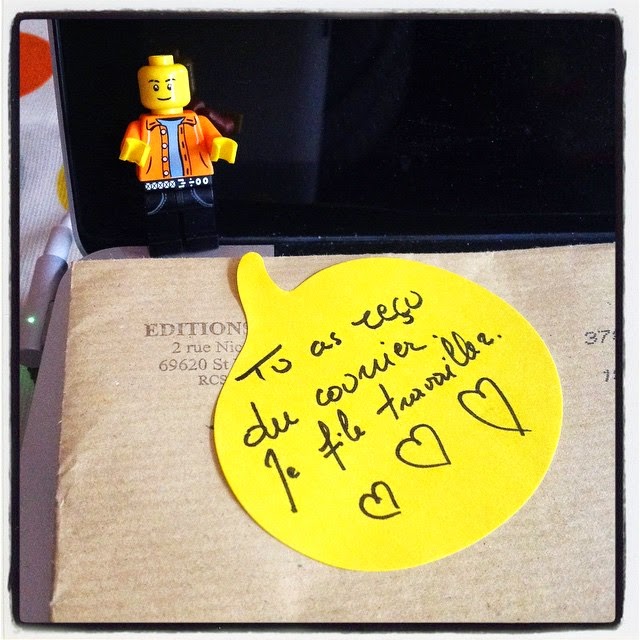 EDITIONS
2 rue Nic
69620 St
RCS
37
Tu as reçu
du courrier.
Je file travailler.